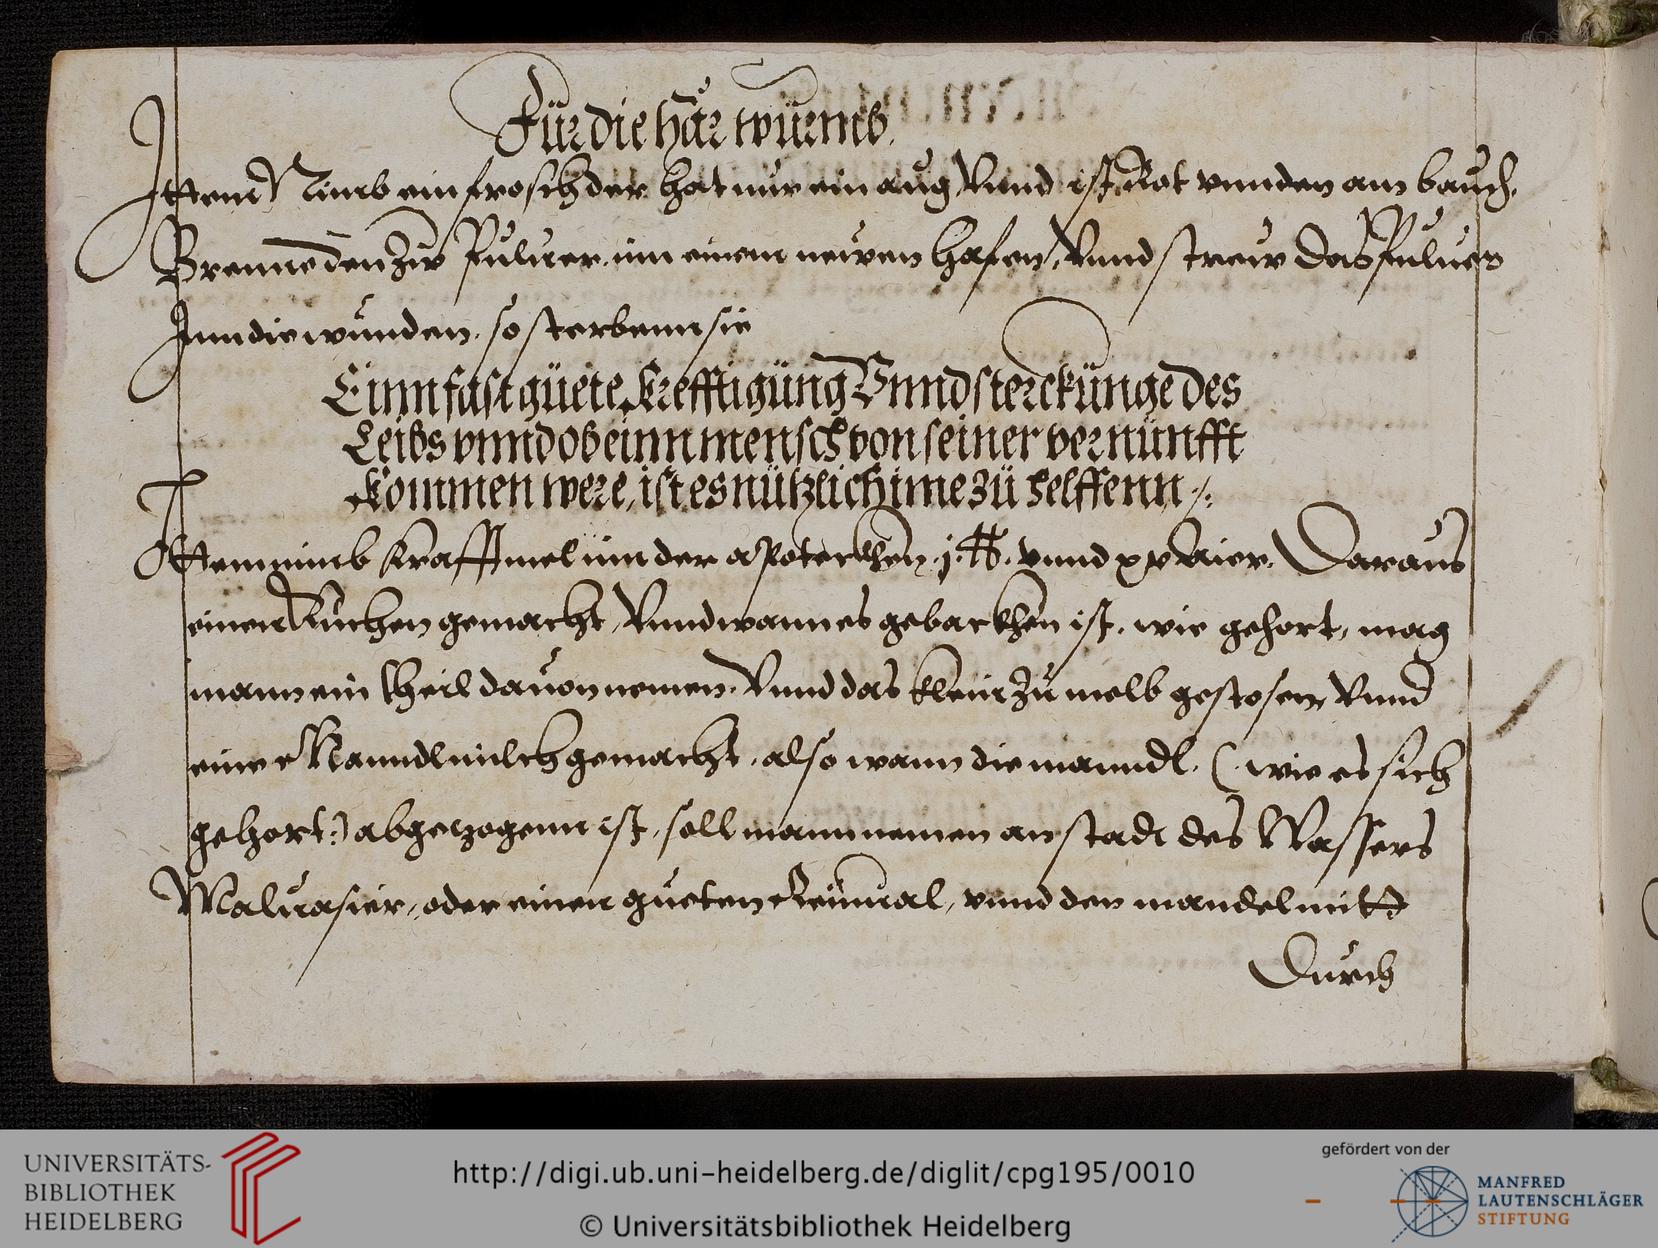 Für die här würmb.
Ittem Nimb ein frosch der hat nur ein aug Vnnd ist Rot vnnden am bauch.
Brenne den zw Puluer inn einem newen hafen, Vnnd strew das Puluer
Inn die wunden, so sterbenn sie
Einn fast güete krefftigüng Vnnd sterckünge des
Leibs vnnd ob einn mensch von seiner vernünfft
kommen were, ist es nützlich ime zü helffenn ./.
Ittem nimb krafftmel inn der apoteckhen .j. ℔. vnnd xv aier. Daraus
einen kuchen gemacht, Vnnd wann es gebackhen ist, wie gehort, mag
mann ein theil dauon nemen. Vnnd das klein zu melb gestosen Vnnd
eine Manndlmilch gemacht, also wann die manndl. (: wie es sich
gehort :) abgezogenn ist, soll mann nemen anstadt des Wassers
Maluasier, oder einen gueten Reinual, vnnd den mandel mitt
Durch
UNIVERSITÄTS-
BIBLIOTHEK
HEIDELBERG
http://digi.ub.uni-heidelberg.de/diglit/cpg195/0010
© Universitätsbibliothek Heidelberg
gefördert von der
MANFRED
LAUTENSCHLÄGER
STIFTUNG